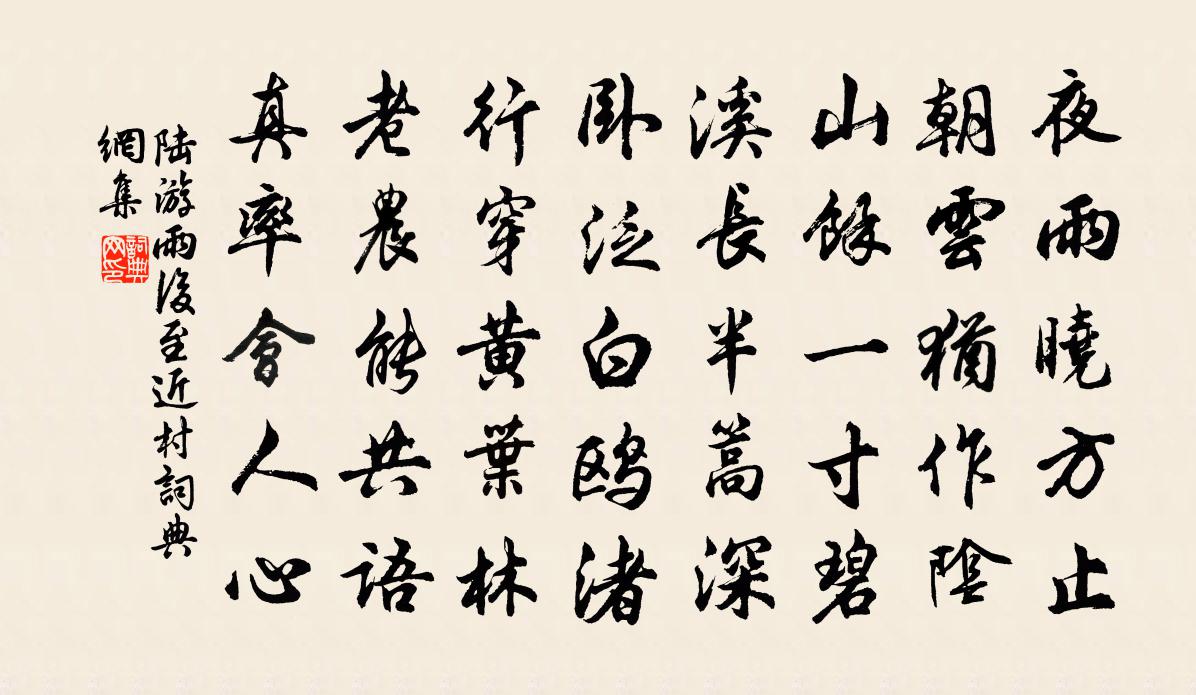 夜雨曉方止
朝雲猶作陰
山餘一寸碧
溪長半篙深
臥泛白鴎渚
行穿黃葉林
老農能共語
真率會人心
陸游雨後至近村詞典
網集
詞典
网印